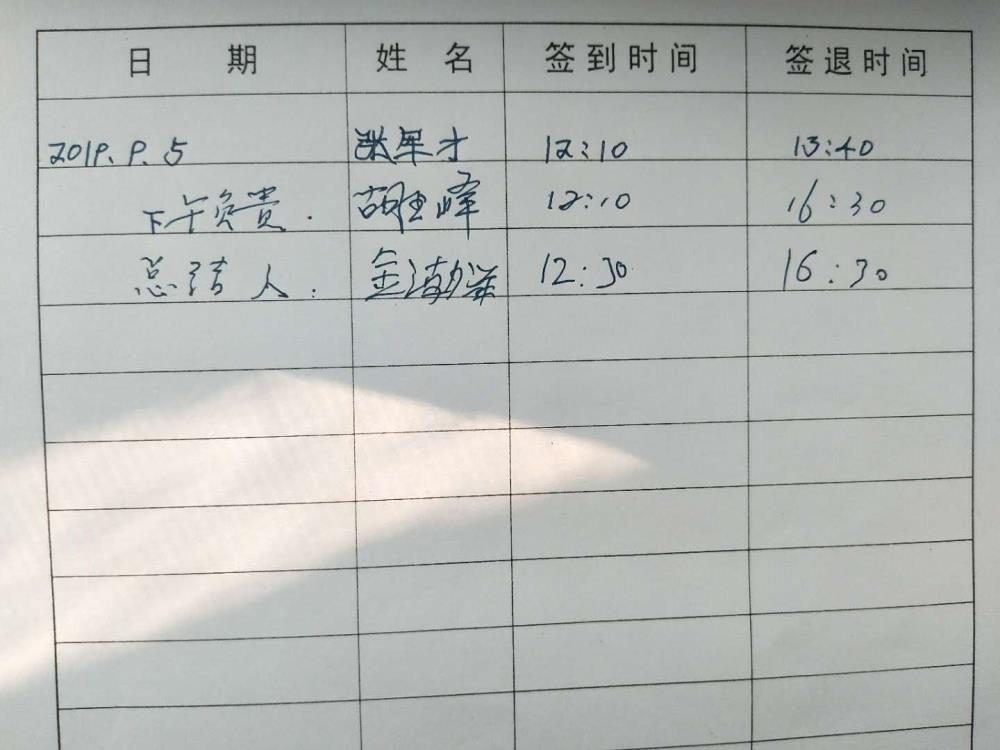 日 期 姓 名 签到时间 签退时间
2019.9.5 张军才 12:10 13:40
下午负责. 胡 峰 12:10 16:30
总结人: 金 12:30 16:30